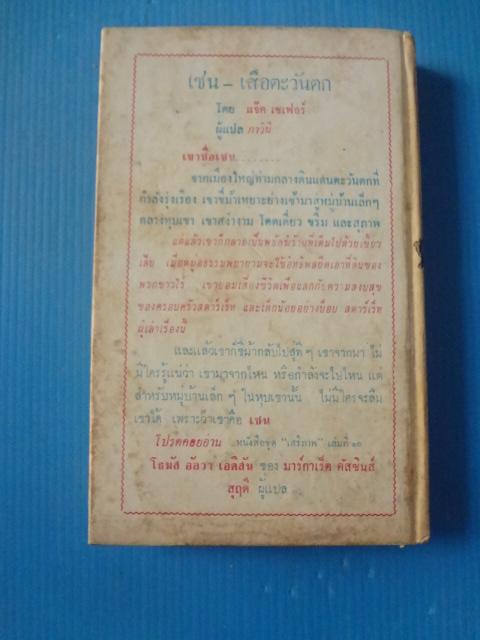 เชน – เสือตะวันตก
โดย แจ๊ค เชเฟอร์
ผู้แปล ภาวิน
เขาชื่อเชน.........
จากเมืองใหญ่ท่ามกลางดินแดนตะวันตกที่
กำลังรุ่งเรือง เขาขี่ม้าเหยาะย่างเข้ามาสู่หมู่บ้านเล็กๆ
กลางหุบเขา เขาสง่างาม โดดเดี่ยว ขรึม และสุภาพ
แต่แล้วเขาก็กลายเป็นพยัคฆ์ร้ายที่เต็มไปด้วยเขี้ยว
เล็บ เมื่ออธรรมพยายามจะใช้อิทธิพลยึดเอาที่ดินของ
พวกชาวไร่ เขายอมเสี่ยงชีวิตเพื่อแลกกับความสงบสุข
ของครอบครัวสตาร์เร็ท และเด็กน้อยอย่างบ๊อบ สตาร์เร็ท
ผู้เล่าเรื่องนี้
และแล้วเขาก็ขี่ม้ากลับไปสู่ที่ๆ เขาจากมา ไม่
มีใครรู้แน่ว่า เขามาจากไหน หรือกำลังจะไปไหน แต่
สำหรับหมู่บ้านเล็ก ๆ ในหุบเขานั้น ไม่มีใครจะลืม
เขาได้ เพราะว่าเขาคือ เชน
โปรดคอยอ่าน หนังสือชุด "เสรีภาพ" เล่มที่ ๑๐
โธมัส อัลวา เอดิสัน ของ มาร์กาเร็ต คัสซินส์
สุฤดี ผู้แปล